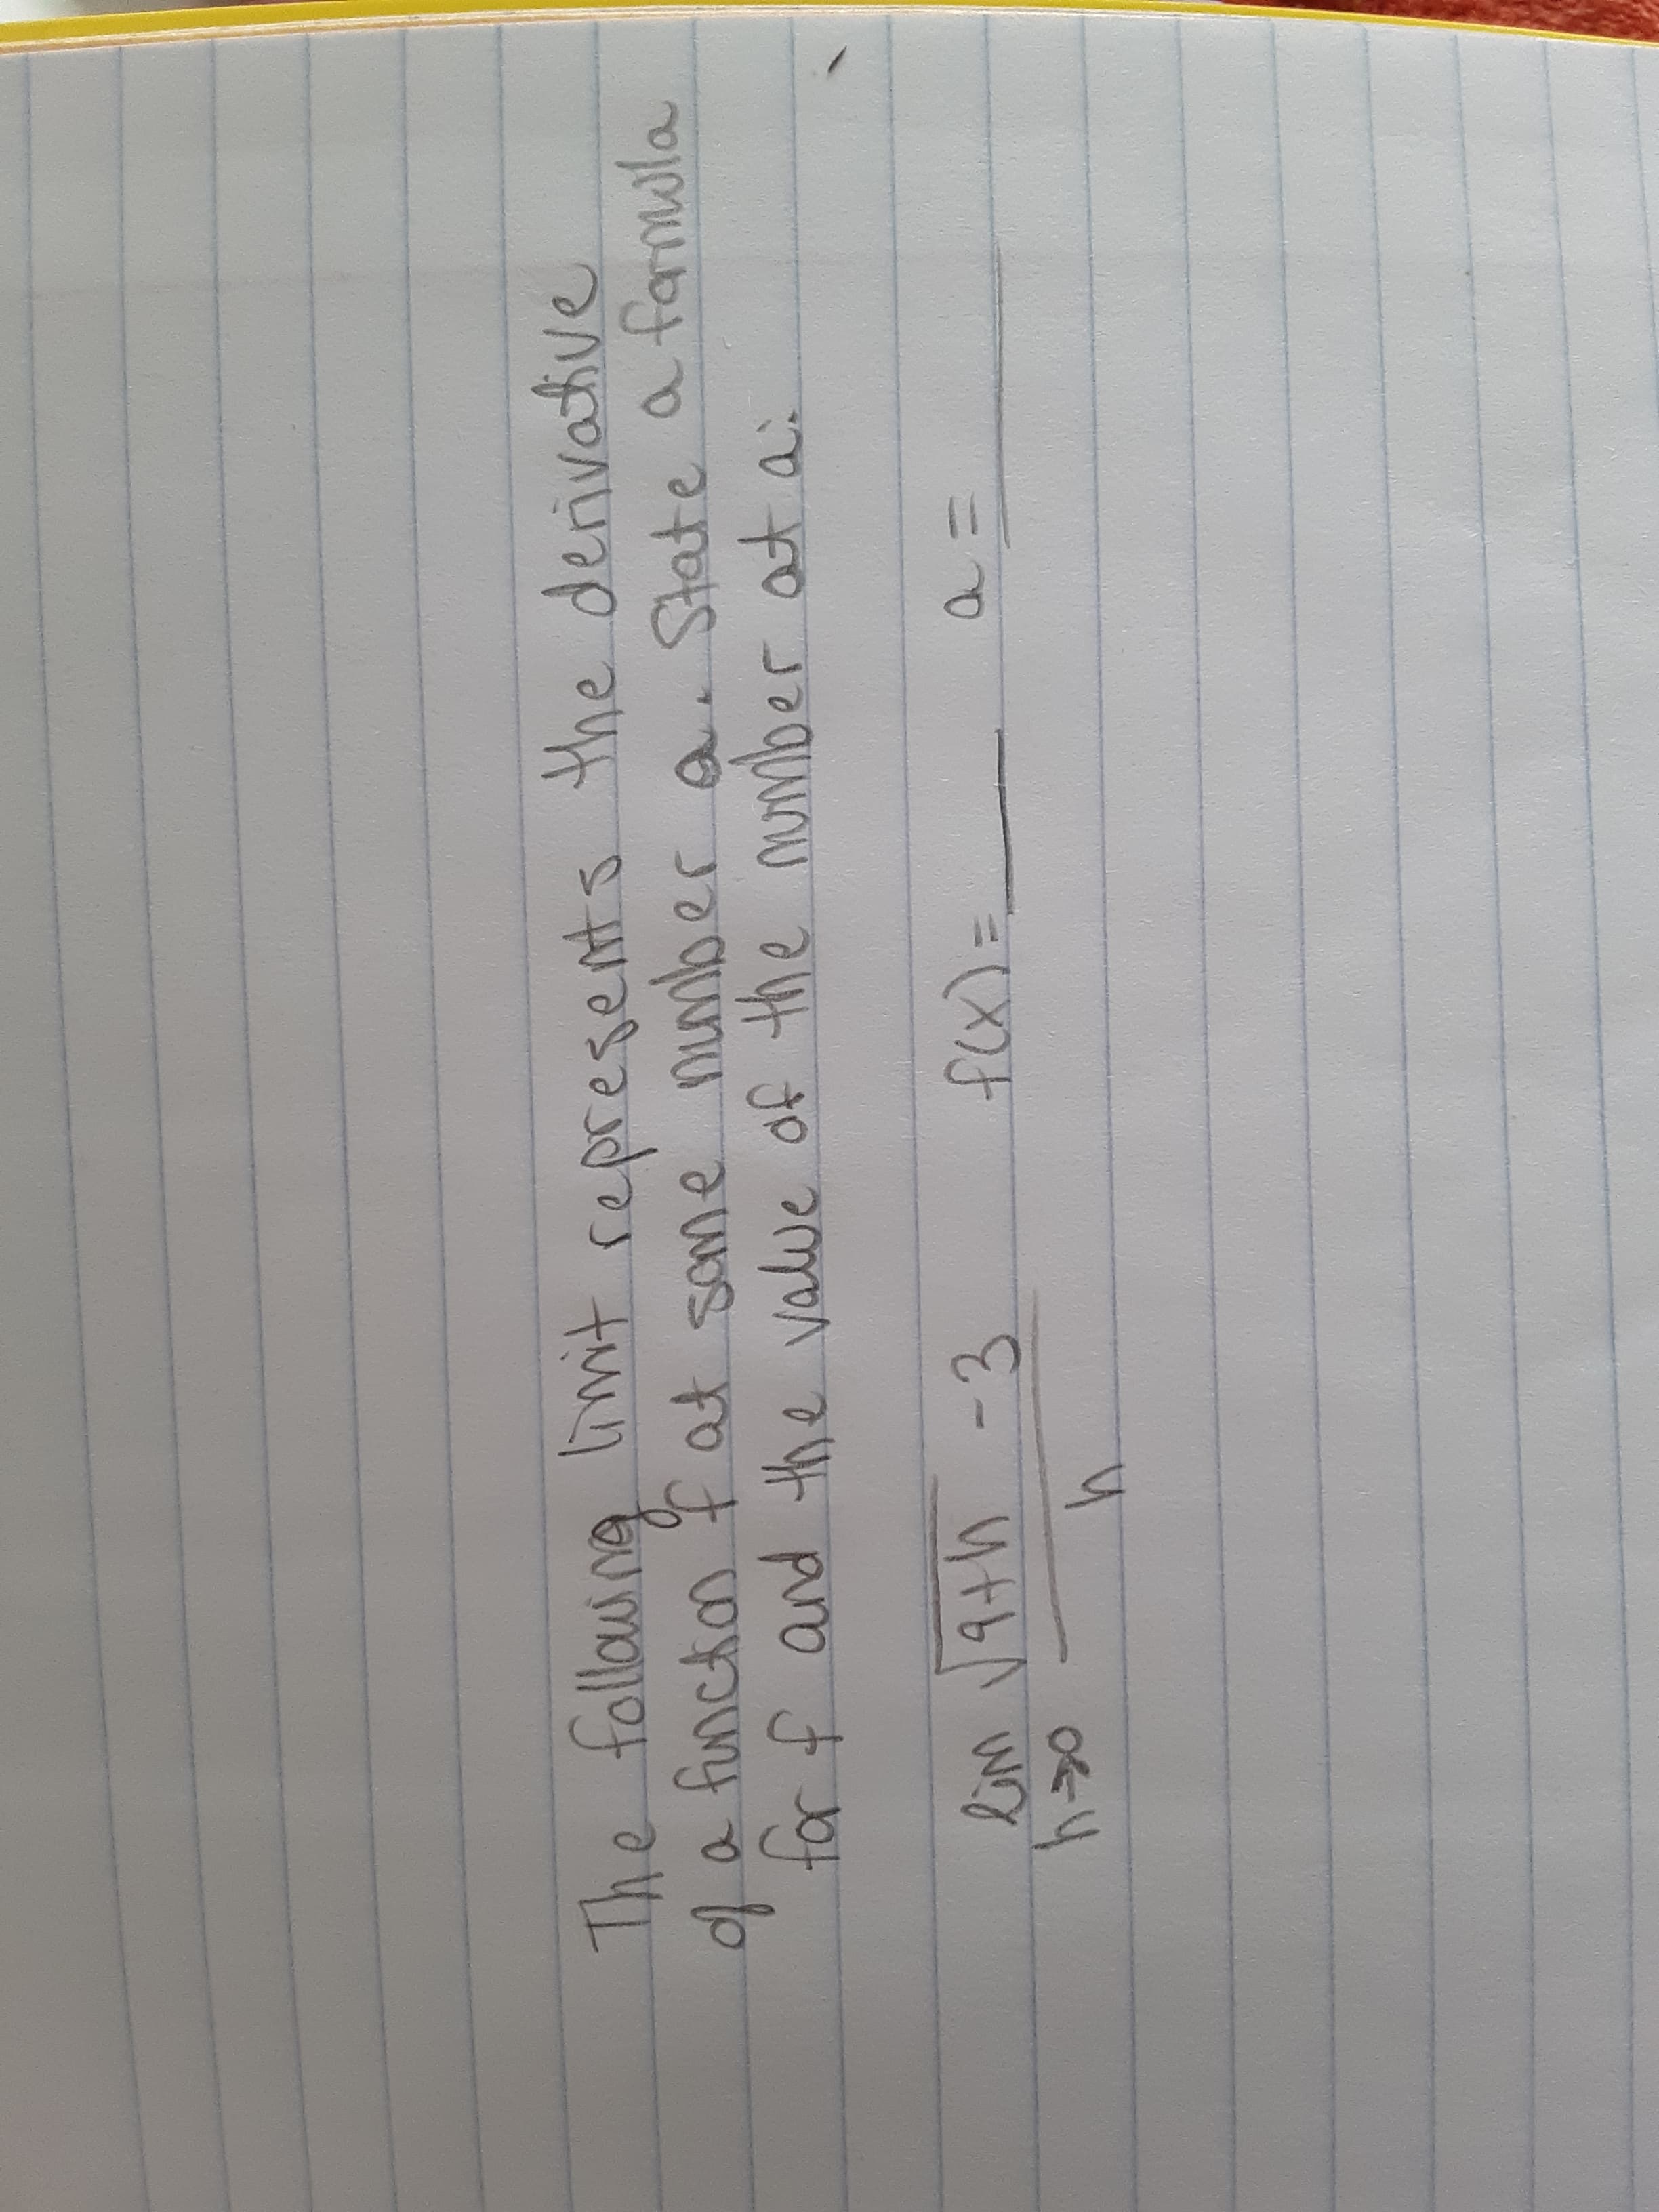 The following limit represents the derivative
of a function f at some number a. State a formula
for f and the value of the number at a.
lim √9+h -3 f(x)=___ a=___
h→0 h